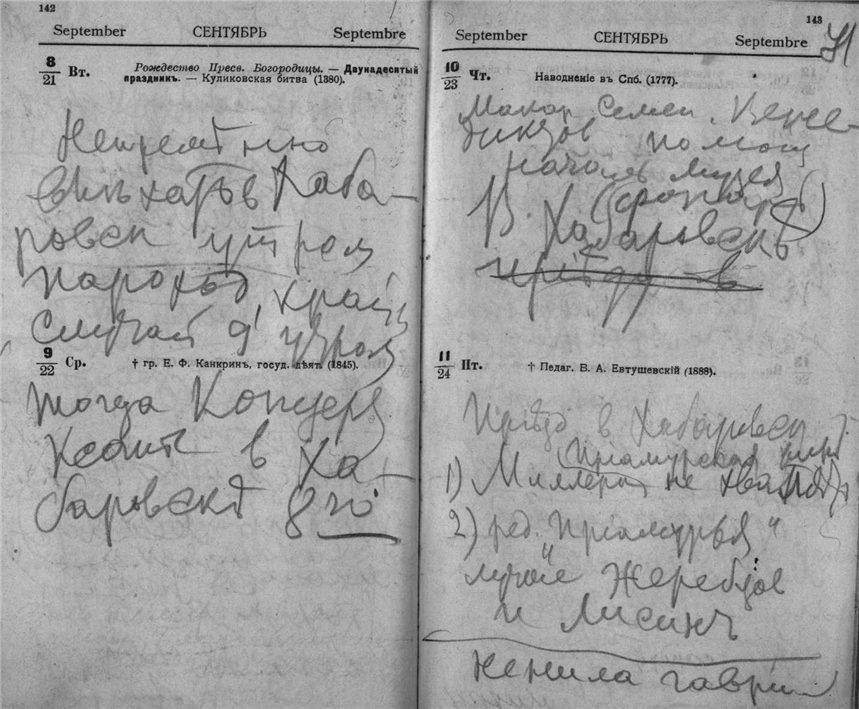 142
September СЕНТЯБРЬ Septembre
8/21 Вт. Рождество Пресв. Богородицы. — Двунадесятый
праздникъ. — Куликовская битва (1380).
выѣхать в Хаба-
ровск утром
крайн
случай 9 утром
9/22 Ср. † гр. Е. Ф. Канкринъ, госуд. дѣят. (1845).
тогда Концерт
в Ха-
баровскѣ 8го
143
September СЕНТЯБРЬ Septembre
71
10/23 Чт. Наводненіе въ Спб. (1777).
Макар Семен. Вене-
диктов помощ
музея
В. Хабаровскъ
приѣду в
11/24 Пт. † Педаг. В. А. Евтушевскій (1888).
в Хабаровск
Приамурская
1) Миллера не
2) ред. "Приамурья"
лучше Жеребцов
и Лисинъ
Ненила Гаврил